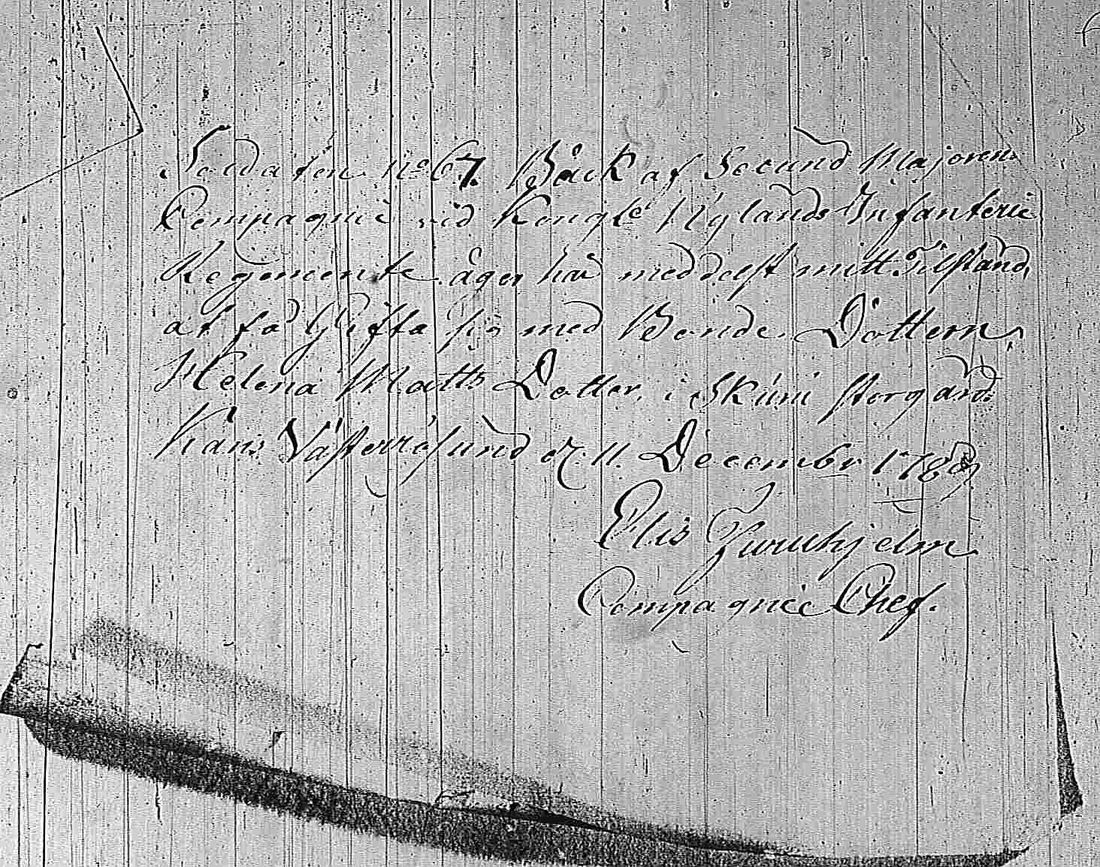 Soldaten No 67. Bäck af Secund Majorens
Compagnie vid Kongl. Nylands Infanterie
Regemente äger här meddelst mitt Tilstånd,
at få Gifta sig med Bonde Dottern,
Helena Matts Dotter, i Skuru storgård
Väster d. 11. December 178
Elis Furuhjelm
Compagnie Chef.